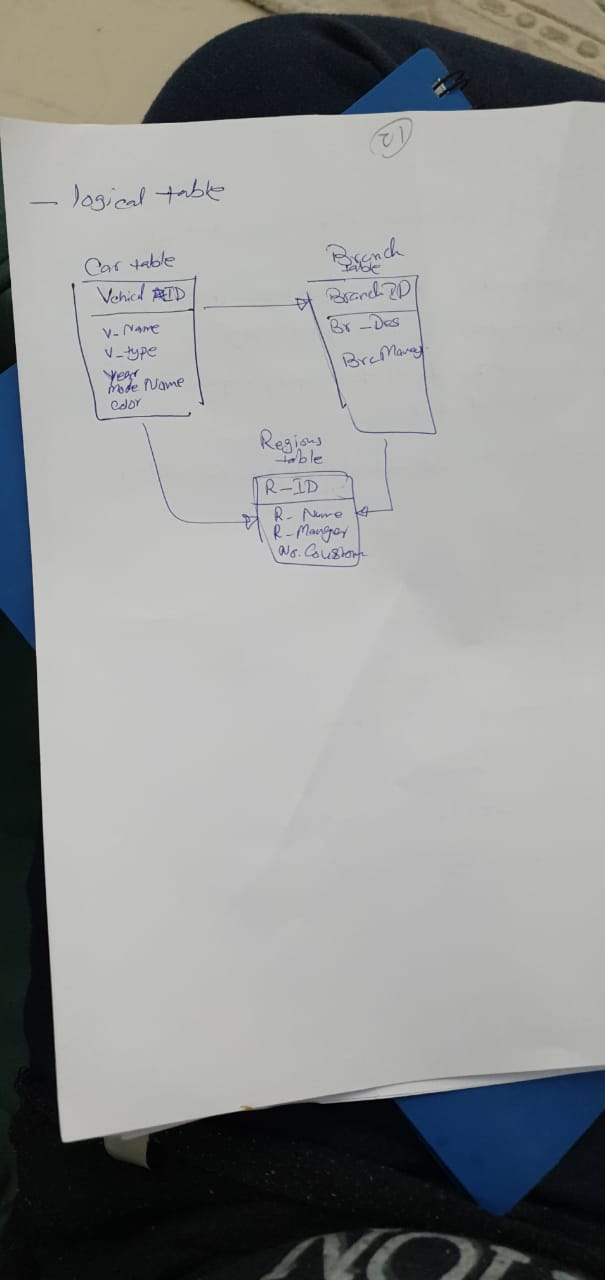 12
— logical table
Car table
Vehicl ID
V-Name
V-type
Year
Mode Name
Color
Branch
table
Branch ID
Br-Des
Regions
table
R-ID
R-Name
R-Manger
No.
NOI